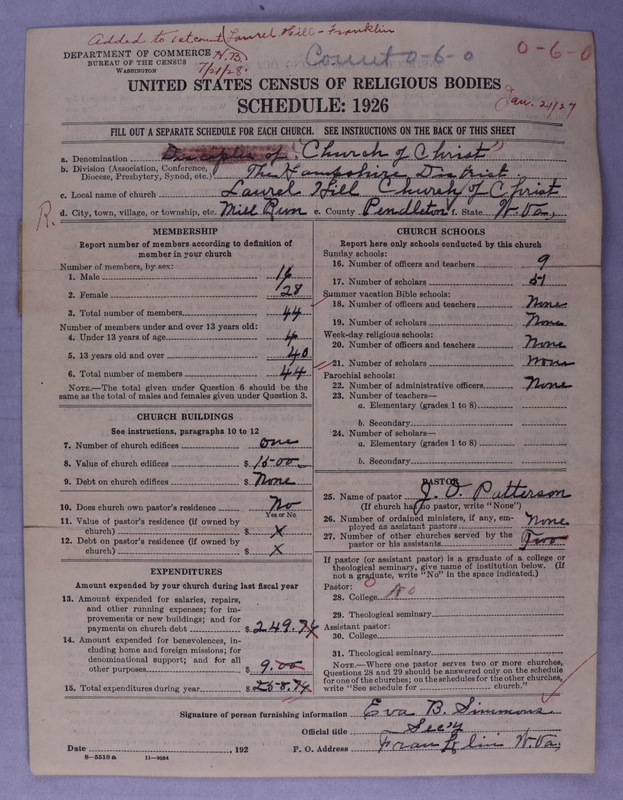 Added to 1st count Laurel Hill - Franklin
DEPARTMENT OF COMMERCE H.B.
BUREAU OF THE CENSUS 7/21/28.
WASHINGTON
Count 0-6-0 0-6-0
UNITED STATES CENSUS OF RELIGIOUS BODIES
SCHEDULE: 1926
Jan. 21/27
FILL OUT A SEPARATE SCHEDULE FOR EACH CHURCH. SEE INSTRUCTIONS ON THE BACK OF THIS SHEET
a. Denomination Disciples of "Church of Christ"
b. Division (Association, Conference, Diocese, Presbytery, Synod, etc.) The Hampshire District
c. Local name of church Laurel Hill Church of Christ
R. d. City, town, village, or township, etc. Mill Run e. County Pendleton f. State W. Va,
MEMBERSHIP
Report number of members according to definition of
member in your church
Number of members, by sex:
1. Male 16
2. Female 28
3. Total number of members 44
Number of members under and over 13 years old:
4. Under 13 years of age 4
5. 13 years old and over 40
6. Total number of members 44
NOTE.—The total given under Question 6 should be the
same as the total of males and females given under Question 3.
CHURCH BUILDINGS
See instructions, paragraphs 10 to 12
7. Number of church edifices one
8. Value of church edifices $ 1500
9. Debt on church edifices $ None
10. Does church own pastor's residence No
Yes or No
11. Value of pastor's residence (if owned by
church) $ X
12. Debt on pastor's residence (if owned by
church) $ X
EXPENDITURES
Amount expended by your church during last fiscal year
13. Amount expended for salaries, repairs,
and other running expenses; for im-
provements or new buildings; and for
payments on church debt $ 249.74
14. Amount expended for benevolences, in-
cluding home and foreign missions; for
denominational support; and for all
other purposes $ 9.00
15. Total expenditures during year $ 258.74
CHURCH SCHOOLS
Report here only schools conducted by this church
Sunday schools:
16. Number of officers and teachers 9
17. Number of scholars 51
Summer vacation Bible schools:
18. Number of officers and teachers None
19. Number of scholars None
Week-day religious schools:
20. Number of officers and teachers None
21. Number of scholars None
Parochial schools:
22. Number of administrative officers None
23. Number of teachers—
a. Elementary (grades 1 to 8)
b. Secondary
24. Number of scholars—
a. Elementary (grades 1 to 8)
b. Secondary
PASTOR
25. Name of pastor J. O. Patterson
(If church has no pastor, write "None")
26. Number of ordained ministers, if any, em-
ployed as assistant pastors None
27. Number of other churches served by the
pastor or his assistants Two
If pastor (or assistant pastor) is a graduate of a college or
theological seminary, give name of institution below. (If
not a graduate, write "No" in the space indicated.)
Pastor:
28. College No
29. Theological seminary
Assistant pastor:
30. College
31. Theological seminary
NOTE.—Where one pastor serves two or more churches,
Questions 28 and 29 should be answered only on the schedule
for one of the churches; on the schedules for the other churches,
write "See schedule for church."
Signature of person furnishing information Eva B. Simmons
Official title Sec'y
Date , 192 P. O. Address Franklin W. Va,
8—5518a 11—9024